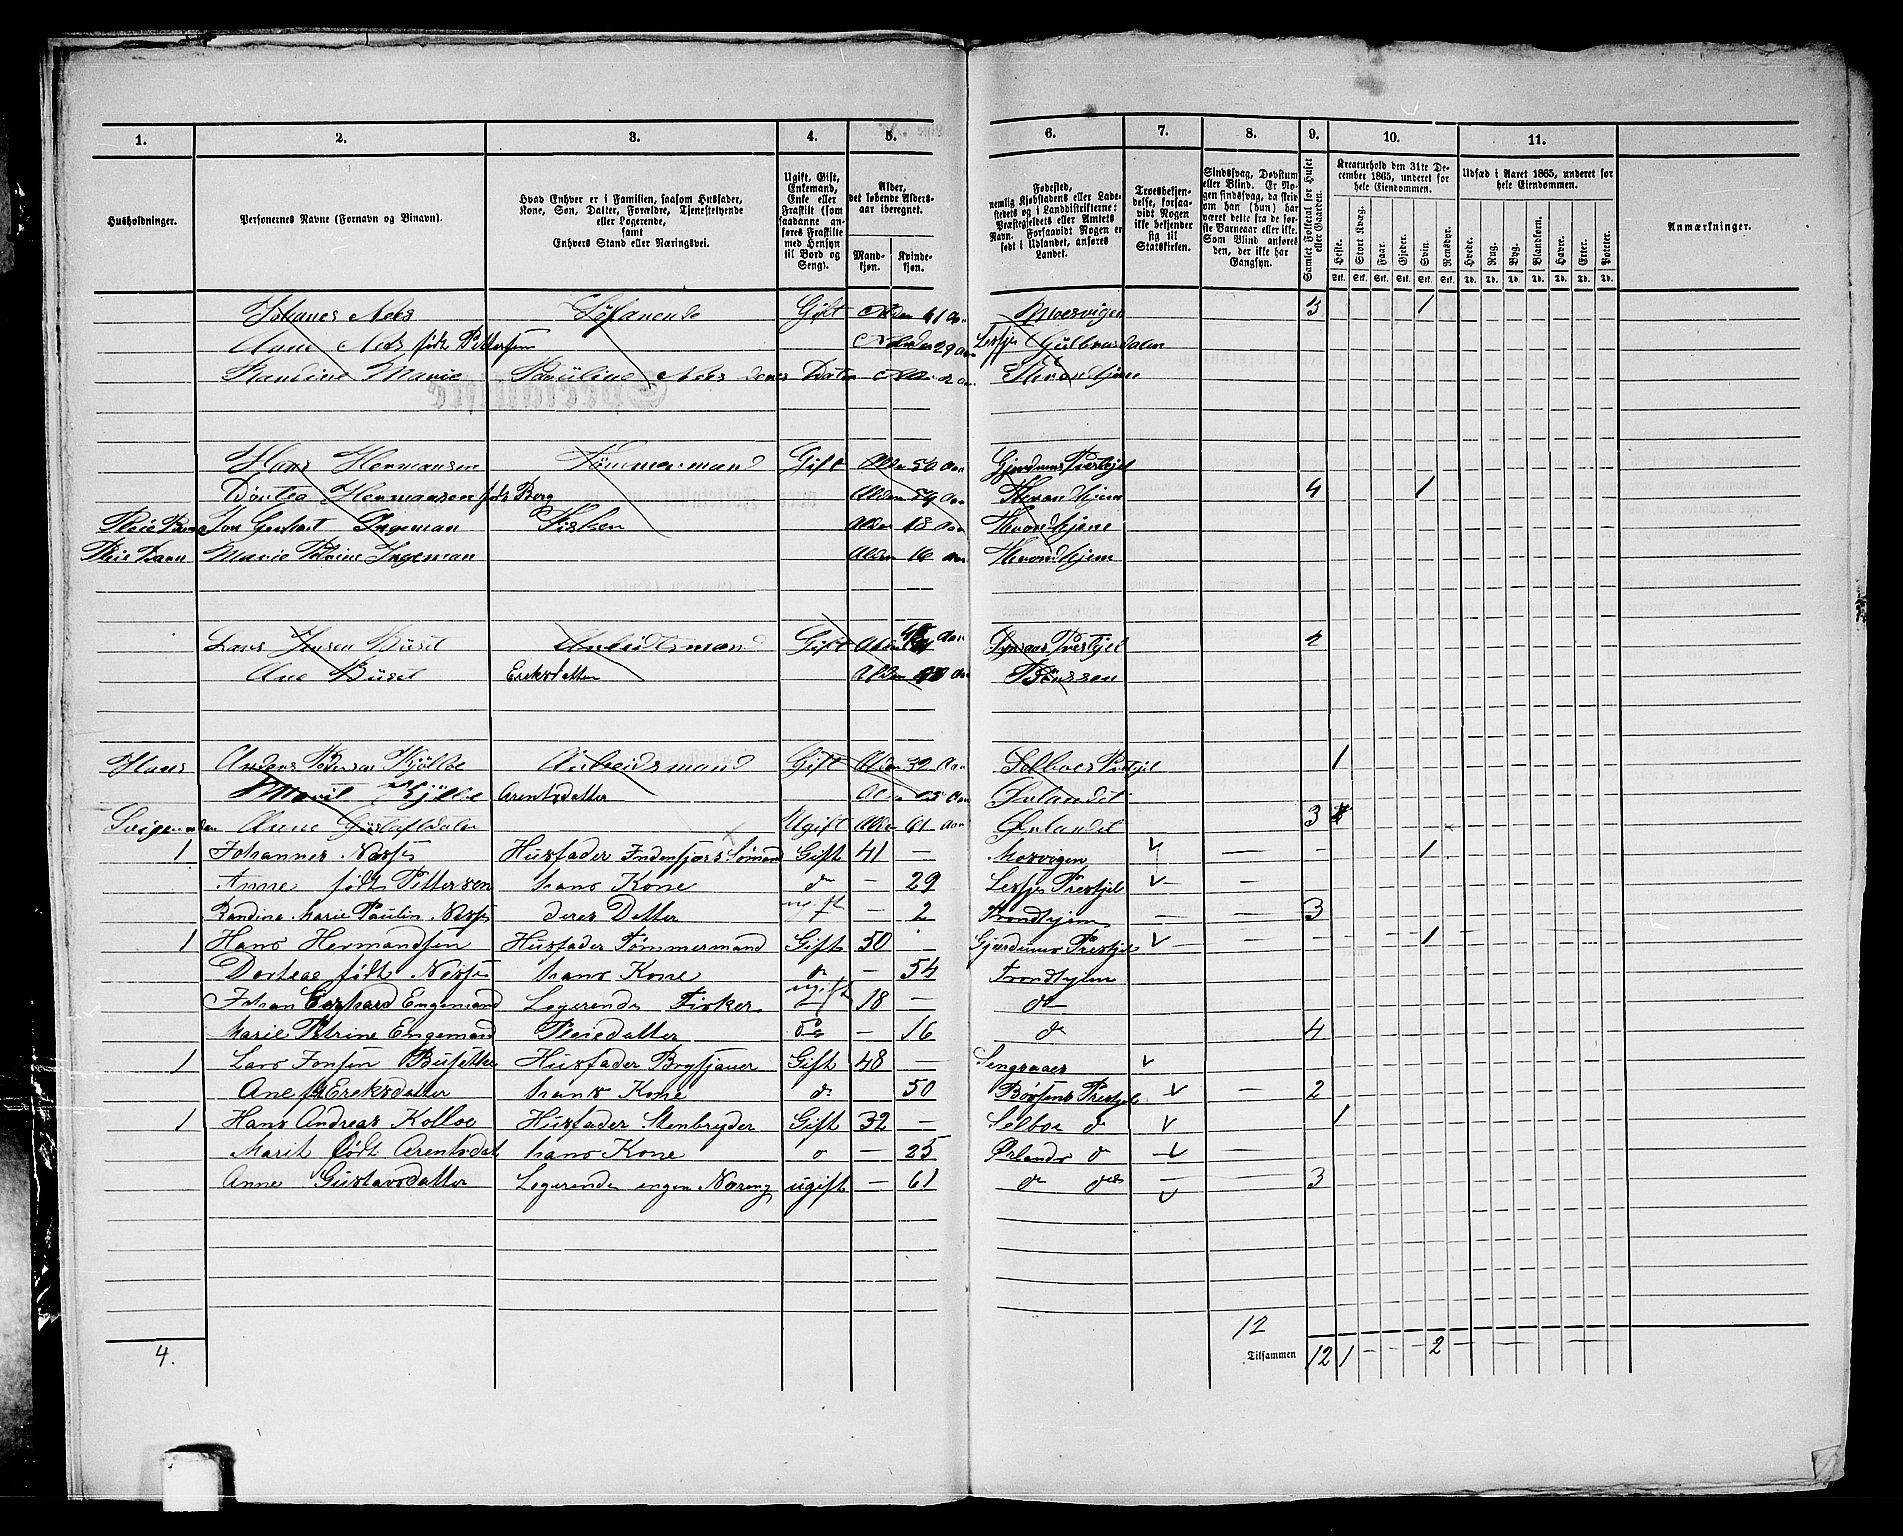 1. 2. 3. 4. 5. 6. 7. 8. 9. 10. 11.
Husholdninger.
Personernes Navne (Fornavn og Binavn).
Hvad Enhver er i Familien, saasom Husfader,
Kone, Søn, Datter, Forældre, Tjenestetyende
eller Logerende,
samt
Enhvers Stand eller Næringsvei.
Ugift, Gift,
Enkemand,
Enke eller
Fraskilt (som
saadanne an-
føres Fraskilte
med Hensyn
til Bord og
Seng).
Alder,
det løbende Alders-
aar iberegnet.
Mand-
kjøn.
Kvinde-
kjøn.
Fødested,
nemlig Kjøbstadens eller Lade-
stedets og i Landdistrikterne:
Præstegjeldets eller Amtets
Navn. Forsaavidt Nogen er
født i Udlandet, anføres
Landet.
Troesbekjen-
delse, forsaa-
vidt Nogen
ikke bekjender
sig til
Statskirken.
Sindssvag, Døvstum
eller Blind. Er No-
gen sindssvag, da skriv
om han (hun) har
været dette fra de før-
ste Barneaar eller ikke.
Som Blind anføres
den, der ikke har
Gangsyn.
Samlet Folketal for Huset
eller Gaarden.
Kreaturhold den 31te De-
cember 1865, underet for
hele Eiendommen.
Heste. Stort Kvæg. Faar. Gjeder. Svin. Rensdyr.
Stk. Stk. Stk. Stk. Stk. Stk.
Udsæd i Aaret 1865, underet for
hele Eiendommen.
Hvede. Rug. Byg. Blandkorn. Havre. Erter. Poteter.
Td. Td. Td. Td. Td. Td. Td.
Anmærkninger.
Johanes Nees Söfarende Gift Alder 41 Aar Mosvigen 3 1
Anne Nees födt Pettersen Alder 29 Aar Lessje Gulbrandsdalen
Randine Marie Pauline Nees deres Dater Alder 2 aar Throndhjem
Hans Hermansen Tømmermand Gift Alder 50 Aar Gjerdrums Prestejel
Dortea Hermansen föd Berg Alder 54 Aar Throndhjem 4 1
Pleie Barn Jon Gerhart Ingeman Fisker Alder 18 Aar Throndhjem
Pleie Barn Marie Petrine Ingeman Alder 16 aar Throndhjem
Lars Jonsen Buset Arbeidsmand Gift Alder 48 Aar Prestjel 2
Ane Buset Ereksdatter Alder 50 Aar Børssen
Hans Anders Pedersen Kjölbe Arbeidsmand Gift Alder 32 Aar Selboes Prestjel 1
Marit Kjölbe Arentsdatter Alder 25 Aar Ørlandet
Anne Ugift Alder 61 Aar Ørlandet 3
1 Johannes Næss Husfader Indenskjærs Sömand Gift 41 — Mosvigen 1
Anne født Pettersen hans Kone do — 29 Lessjes Prestjel
Randine Marie Paulin Næss deres Datter ugift — 2 Trondhjem 3
1 Hans Hermandsen Husfader Tømmermand Gift 50 Gjerdrums Prestjel 1
Dorteae født Næss hans Kone do — 54 Trondhjem
Johan Gerhard Engemand Logerende Fisker ugift 18 — do
Marie Petrine Engemand Pleiedatter do — 16 do 4
1 Lars Jonsen Busetter Husfader Brygsjauer Gift 48 — Singsaaes
Ane f. Ereksdatter hans Kone do 50 Børsens Prestjel 2
1 Hans Andreas Kolloe Husfader Stenbryder Gift 32 — Selboe do 1
Marit født Arentsdat hans Kone do — 25 Ørlands do
Anne Gustavsdatter Logerende ingen Næring ugift — 61 do do 3
4.
12
Tilsammen 12 1 — — 2